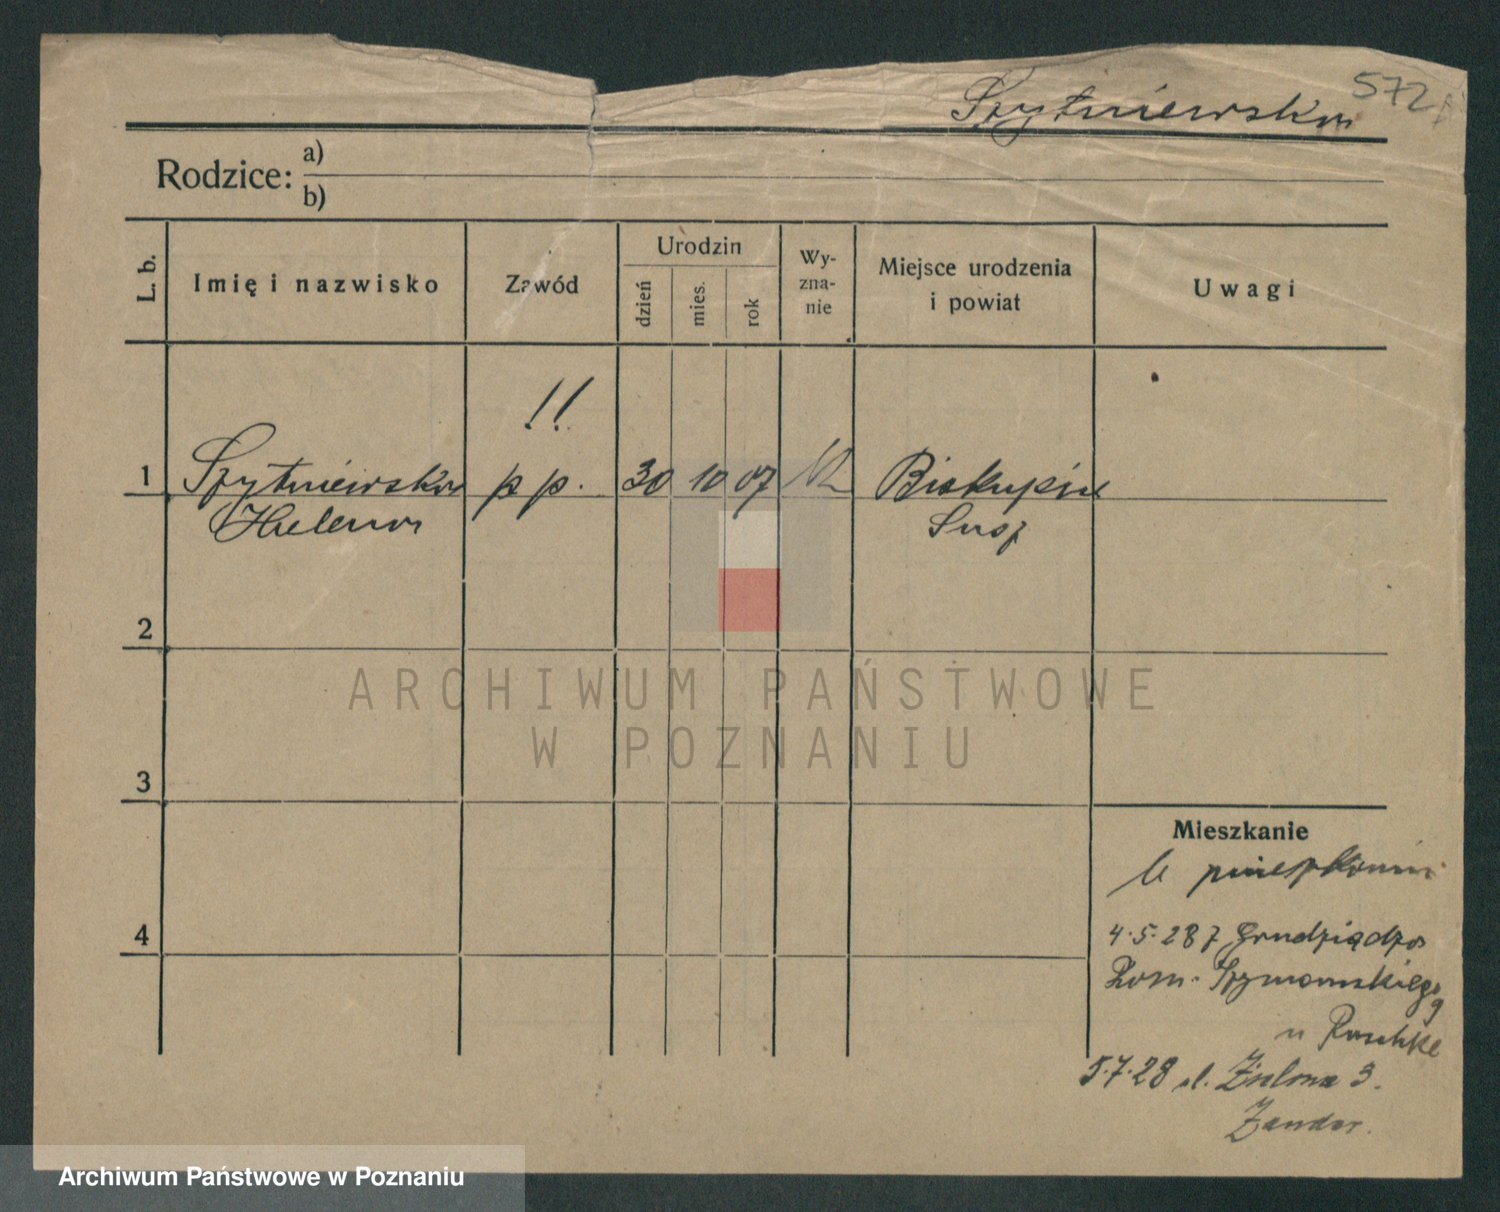 572
Szytniewska
Rodzice: a)
b)
L. b.
Imię i nazwisko
Zawód
Urodzin
dzień
mies.
rok
Wy-
zna-
nie
Miejsce urodzenia
i powiat
Uwagi
!!
1 Szytniewska p p. 30 10 07 Biskupice
Helena Susz
2
ARCHIWUM PAŃSTWOWE
W POZNANIU
3
Mieszkanie
4
4.5.28 z Grudziądza
Rom. Szymańskiego 9
u Raschke
5.7.28 ul. Zielona 3.
Zander.
Archiwum Państwowe w Poznaniu